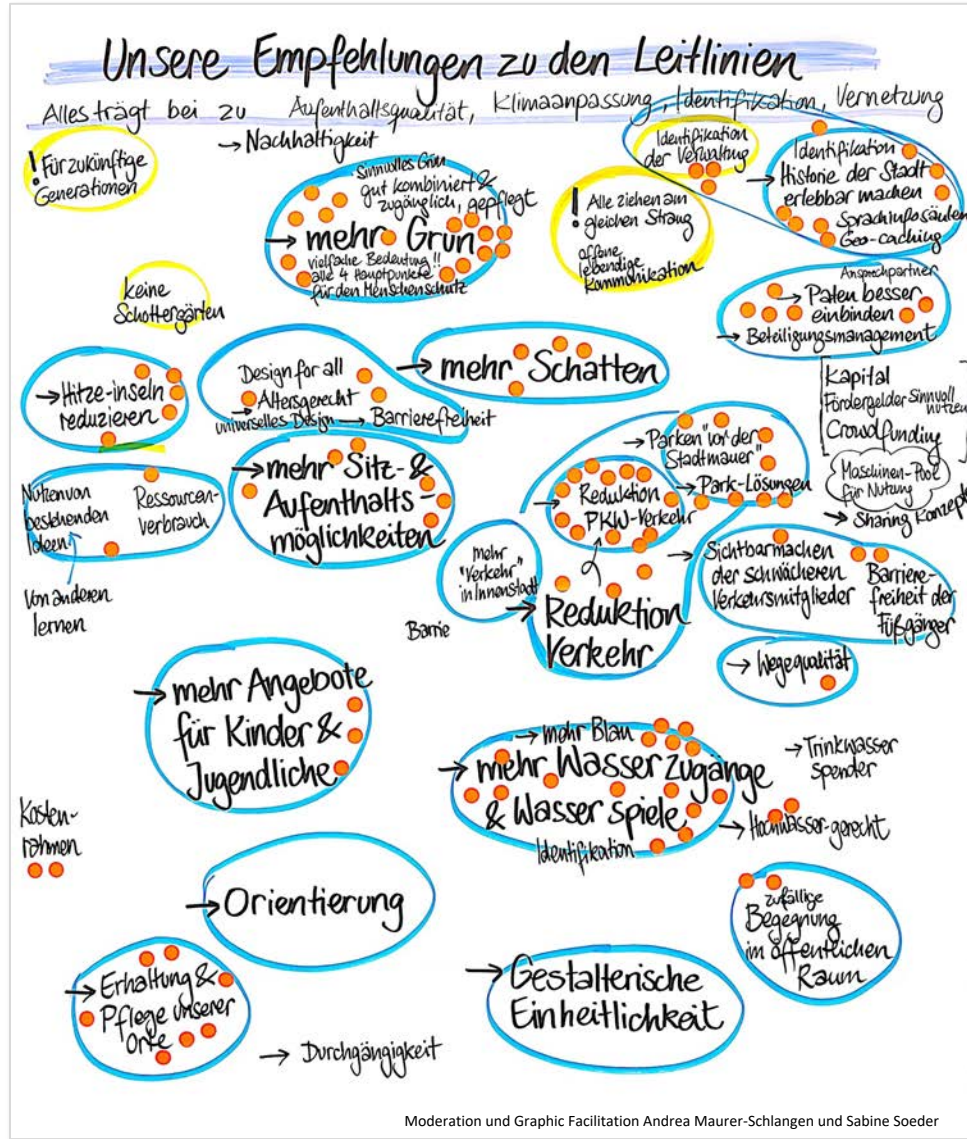 Unsere Empfehlungen zu den Leitlinien
Alles trägt bei zu Aufenthaltsqualität, Klimaanpassung, Identifikation, Vernetzung
! Für zukünftige
Generationen
→ Nachhaltigkeit
Sinnvolles Grün
gut kombiniert &
zugänglich, gepflegt
→ mehr Grün
vielfache Bedeutung !!
alle 4 Hauptpunkte
für den Menschenschutz
Identifikation
der Verwaltung
! Alle ziehen am
gleichen Strang
offene
lebendige
Kommunikation
Identifikation
→ Historie der Stadt
erlebbar machen
Sprachinfosäulen
Geo-caching
keine
Schottergärten
Ansprechpartner
→ Paten besser
einbinden
→ Beteiligungsmanagement
→ Hitze-inseln
reduzieren
Design for all
→ Altersgerecht
universelles Design → Barrierefreiheit
→ mehr Schatten
Kapital
Fördergelder sinnvoll
nutzen
Crowdfunding
Maschinen-Pool
für Nutzung
→ Sharing Konzepte
Nutzen von
bestehenden
Ideen
Ressourcen-
verbrauch
Von anderen
lernen
→ mehr Sitz- &
Aufenthalts-
möglichkeiten
→ Parken "vor der
Stadtmauer"
→ Park-Lösungen
→ Reduktion
PKW-Verkehr
mehr
"Verkehr"
in Innenstadt
Barrie
→ Reduktion
Verkehr
→ Sichtbarmachen
der schwächeren
Verkehrsmitglieder
Barriere-
freiheit der
Fußgänger
→ Wegequalität
→ mehr Angebote
für Kinder &
Jugendliche
→ mehr Blau
→ mehr Wasserzugänge
& Wasserspiele
Identifikation
→ Trinkwasser
spender
→ Hochwasser-gerecht
Kosten-
rahmen
→ Orientierung
zufällige
Begegnung
im öffentlichen
Raum
→ Erhaltung &
Pflege unserer
Orte
→ Gestalterische
Einheitlichkeit
→ Durchgängigkeit
Moderation und Graphic Facilitation Andrea Maurer-Schlangen und Sabine Soeder